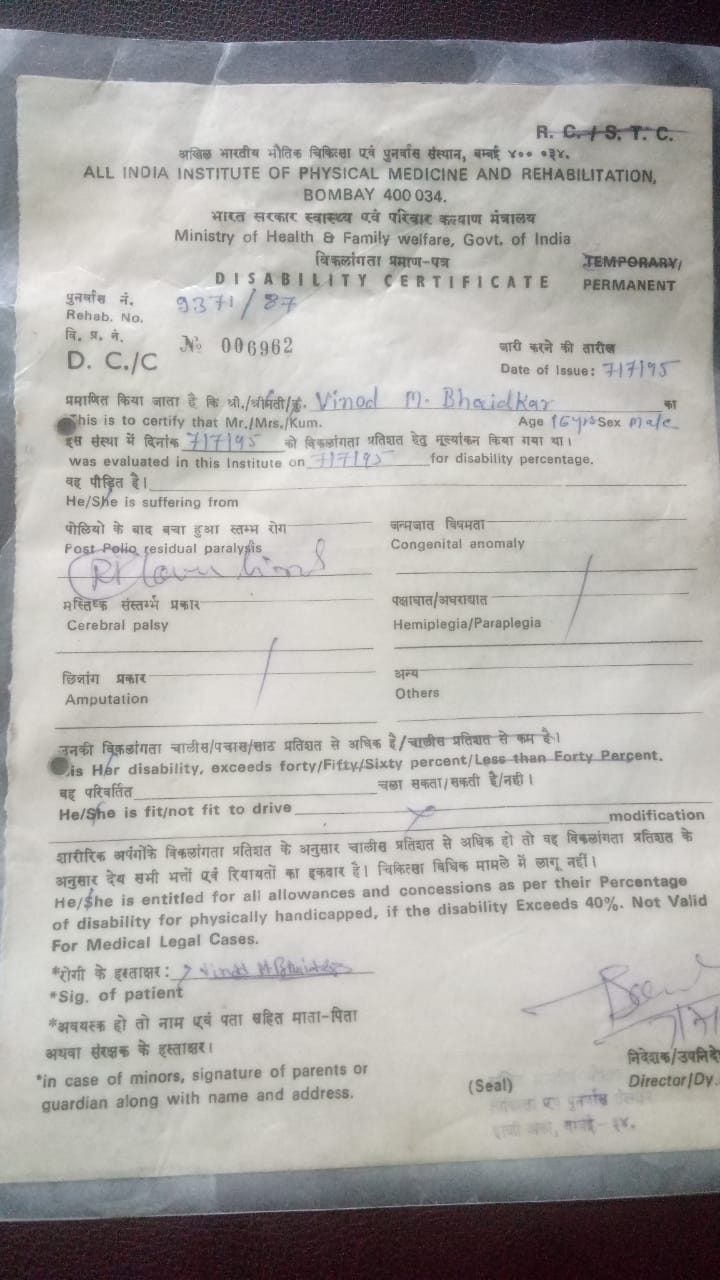 R. C. / S. T. C.
अखिल भारतीय भौतिक चिकित्सा एवं पुनर्वास संस्थान, बम्बई ४०० ०३४.
ALL INDIA INSTITUTE OF PHYSICAL MEDICINE AND REHABILITATION,
BOMBAY 400 034.
भारत सरकार स्वास्थ्य एवं परिवार कल्याण मंत्रालय
Ministry of Health & Family welfare, Govt. of India
विकलांगता प्रमाण-पत्र
TEMPORARY/
DISABILITY CERTIFICATE
PERMANENT
पुनर्वास नं.
Rehab. No. 9371/87
वि. प्र. नं.
D. C./C № 006962
जारी करने की तारीख
Date of Issue: 7/7/95
प्रमाणित किया जाता है कि श्री./श्रीमती/कुं. Vinod M. Bhaidkar का
This is to certify that Mr./Mrs./Kum. Age 16 yrs Sex Male
इस संस्था में दिनांक 7/7/95 को विकलांगता प्रतिशत हेतु मूल्यांकन किया गया था।
was evaluated in this Institute on 7/7/95 for disability percentage.
वह पीड़ित है।
He/She is suffering from
पोलियो के बाद बचा हुआ स्तम्भ रोग
जन्मजात विषमता
Post Polio residual paralysis
Congenital anomaly
मस्तिष्क संस्तम्भ प्रकार
पक्षाघात/अधराघात
Cerebral palsy
Hemiplegia/Paraplegia
छिन्नांग प्रकार
अन्य
Amputation
Others
उनकी विकलांगता चालीस/पचास/साठ प्रतिशत से अधिक है/चालीस प्रतिशत से कम है।
is Her disability, exceeds forty/Fifty/Sixty percent/Less than Forty Percent.
वह परिवर्तित चला सकता/सकती है/नही।
He/She is fit/not fit to drive modification
शारीरिक अपंगोंके विकलांगता प्रतिशत के अनुसार चालीस प्रतिशत से अधिक हो तो वह विकलांगता प्रतिशत के
अनुसार देय सभी भत्तों एवं रियायतों का हकदार है। चिकित्सा विधिक मामले में लागू नहीं।
He/She is entitled for all allowances and concessions as per their Percentage
of disability for physically handicapped, if the disability Exceeds 40%. Not Valid
For Medical Legal Cases.
*रोगी के हस्ताक्षर: Vinod M Bhaidkar
*Sig. of patient
*अवयस्क हो तो नाम एवं पता सहित माता-पिता
अथवा संरक्षक के हस्ताक्षर।
*in case of minors, signature of parents or
guardian along with name and address.
निदेशक/उपनिदे
(Seal)
Director/Dy.